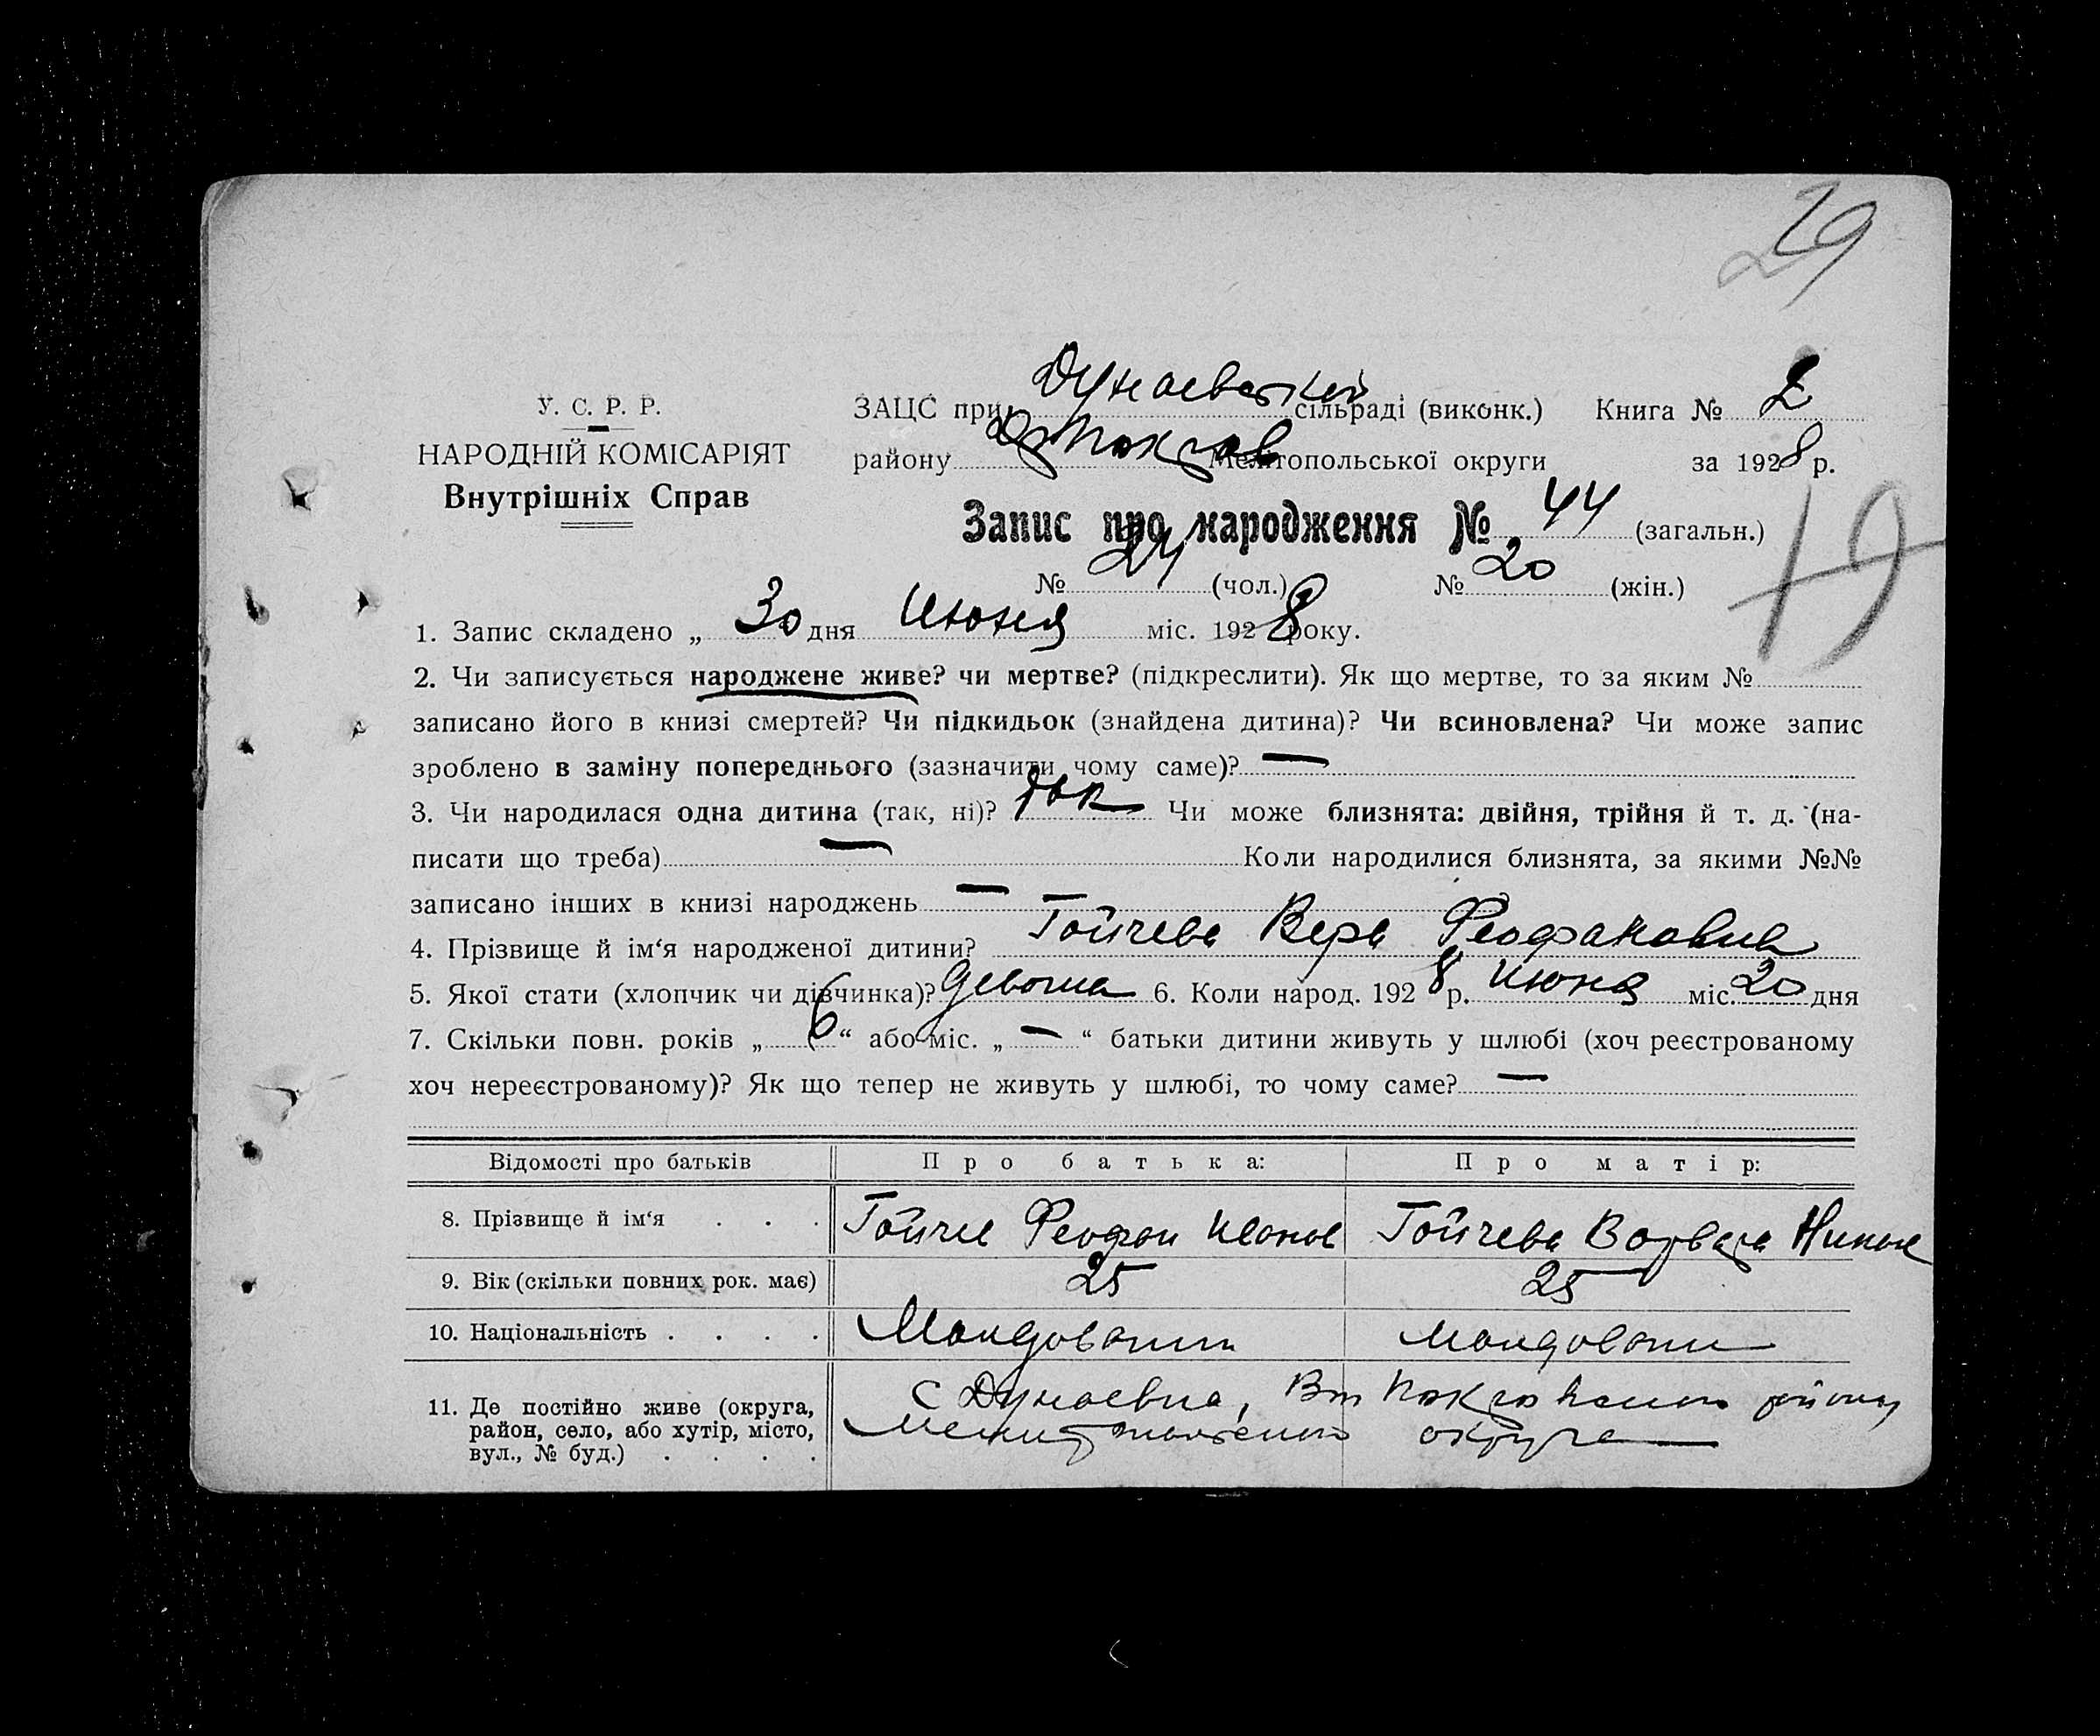 29
У. С. Р. Р.
НАРОДНІЙ КОМІСАРІЯТ
Внутрішніх Справ
ЗАЦС при Дунаевской сільраді (виконк.) Книга № 2
району Покров Мелітопольської округи за 1928 р.
Запис про народження № 44 (загальн.)
№ 24 (чол.) № 20 (жін.)
19
1. Запис складено „ 30 дня Июня міс. 1928 року.
2. Чи записується народжене живе? чи мертве? (підкреслити). Як що мертве, то за яким №
записано його в книзі смертей? Чи підкидьок (знайдена дитина)? Чи всиновлена? Чи може запис
зроблено в заміну попереднього (зазначити чому саме)? —
3. Чи народилася одна дитина (так, ні)? так Чи може близнята: двійня, трійня й т. д. (на-
писати що треба) — Коли народилися близнята, за якими №№
записано інших в книзі народжень —
4. Прізвище й ім‘я народженої дитини? Гойчева Вера Феофановна
5. Якої стати (хлопчик чи дівчинка)? девочка 6. Коли народ. 1928 р. Июня міс. 20 дня
7. Скільки повн. років „ 6 “ або міс. „ — “ батьки дитини живуть у шлюбі (хоч реєстрованому
хоч нереєстрованому)? Як що тепер не живуть у шлюбі, то чому саме? —
Відомості про батьків Про батька: Про матір:
8. Прізвище й ім‘я . . . Гойчев Феофан Иванов Гойчева Варвара Никол
9. Вік (скільки повних рок. має) 25 25
10. Національність . . . . Молдованин молдован
11. Де постійно живе (округа, район, село, або хутір, місто, вул., № буд.) . . . . с Дунаевка, Покровского району
Мелитопольского округа